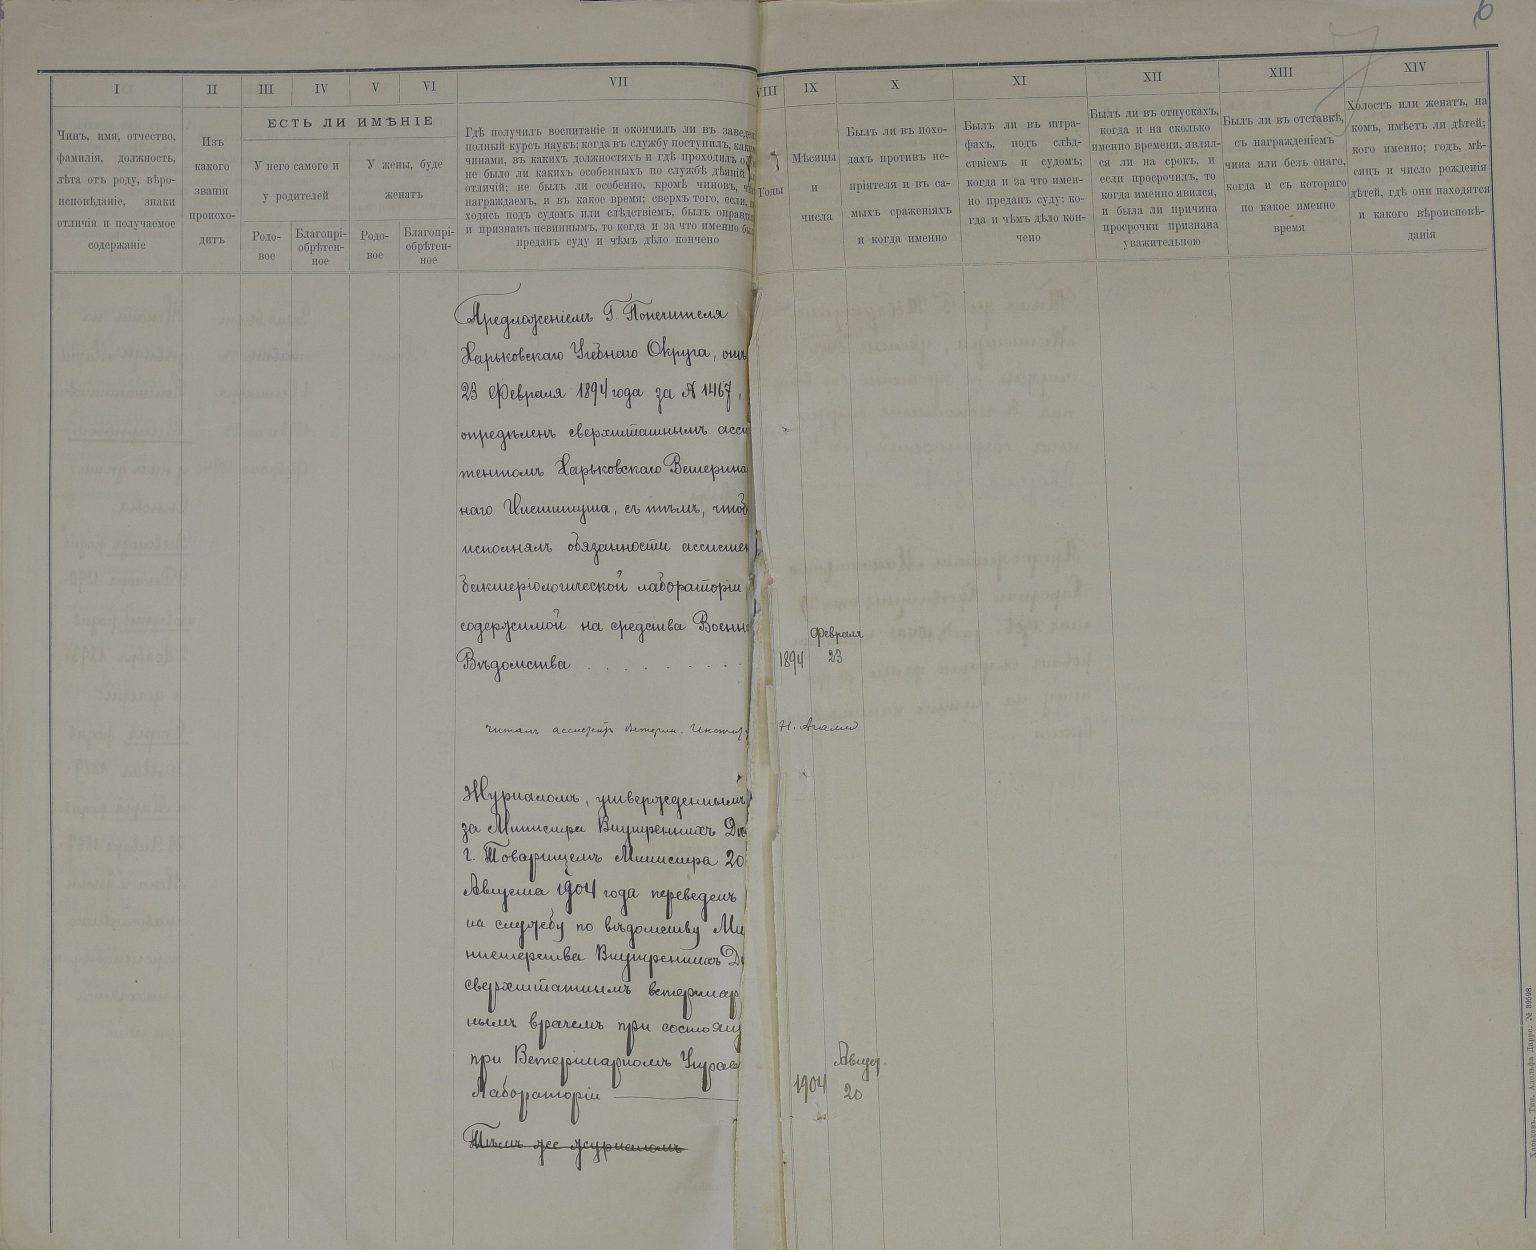 6
7
I
II
III
IV
V
VI
VII
VIII
IX
X
XI
XII
XIII
XIV
Чинъ, имя, отчество,
фамилія, должность,
лѣта отъ роду, вѣро-
исповѣданіе, знаки
отличія и получаемое
содержаніе
Изъ
какого
званія
происхо-
дитъ
ЕСТЬ ЛИ ИМѢНІЕ
У него самого и
у родителей
У жены, буде
женатъ
Родо-
вое
Благопрі-
обрѣтен-
ное
Родо-
вое
Благопрі-
обрѣтен-
ное
Гдѣ получилъ воспитаніе и окончилъ ли въ заведе
полный курсъ наукъ; когда въ службу поступилъ, каки
чинами, въ какихъ должностяхъ и гдѣ проходилъ о
не было ли какихъ особенныхъ по службѣ дѣяній
отличій; не былъ ли особенно, кромѣ чиновъ, чѣ
награждаемъ, и въ какое время; сверхъ того, если, н
ходясь подъ судомъ или слѣдствіемъ, былъ оправда
и признанъ невиннымъ, то когда и за что именно бы
преданъ суду и чѣмъ дѣло кончено
Годы
Мѣсяцы
и
числа
Былъ ли въ похо-
дахъ противъ не-
пріятеля и въ са-
мыхъ сраженіяхъ
и когда именно
Былъ ли въ штра-
фахъ, подъ слѣд-
ствіемъ и судомъ;
когда и за что имен-
но преданъ суду; ко-
гда и чѣмъ дѣло кон-
чено
Былъ ли въ отпускахъ,
когда и на сколько
именно времени, являл-
ся ли на срокъ, и
если просрочилъ, то
когда именно явился,
и была ли причина
просрочки признана
уважительною
Былъ ли въ отставкѣ,
съ награжденіемъ
чина или безъ онаго,
когда и съ котораго
по какое именно
время
Холостъ или женатъ, на
комъ, имѣетъ ли дѣтей;
кого именно; годъ, мѣ-
сяцъ и число рожденія
дѣтей, гдѣ они находятся
и какого вѣроисповѣ-
данія
Предложеніемъ Г. Попечителя
Харьковскаго Учебнаго Округа, отъ
23 Февраля 1894 года за № 1467,
опредѣленъ сверхштатнымъ асси
тентомъ Харьковскаго Ветерина
наго Института, съ тѣмъ, чтоб
исполнялъ обязанности ассистен
бактеріологической лабораторіи
содержимой на средства Военн
Вѣдомства . . . . . . . . .
1894
Февраля
23
Читалъ ассистентъ Ветерин. Инстит
Н. Агалли
Журналомъ, утвержденнымъ
за Министра Внутреннихъ Дѣ
г. Товарищемъ Министра 20
Августа 1904 года переведенъ
на службу по вѣдомству Ми
нистерства Внутреннихъ Д
сверхштатнымъ ветеринар
нымъ врачемъ при состоящ
при Ветеринарномъ Управ
Лабораторіи
1904
Август.
20
Тѣмъ же журналомъ
Харьковъ. Тип. Адольфа Дарре. № 89598.